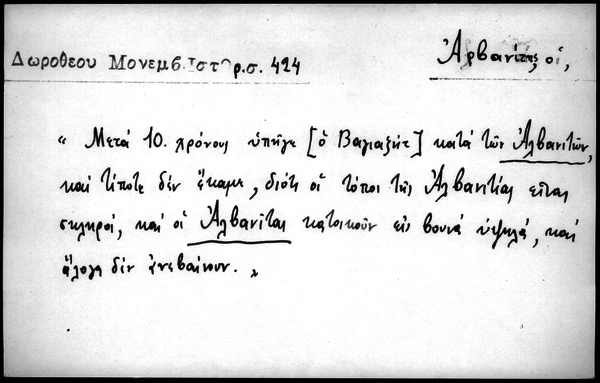 Ἀρβανίτης, οἱ,
Δωροθεου Μονεμβ. Ιστορ. σ. 424
« Μετά 10. χρόνους ὑπῆγε [ὁ Βαγιαζήτ] κατά τῶν Ἀλβανιτῶν,
καί τίποτε δέν ἔκαμε, διότι οἱ τόποι τῆς Ἀλβανιτίας εἶναι
σκληροί, καί οἱ Ἀλβανῖται κατοικοῦν εἰς βουνά ὑψηλά, καί
ἄλογα δέν ἀνεβαίνουν. »